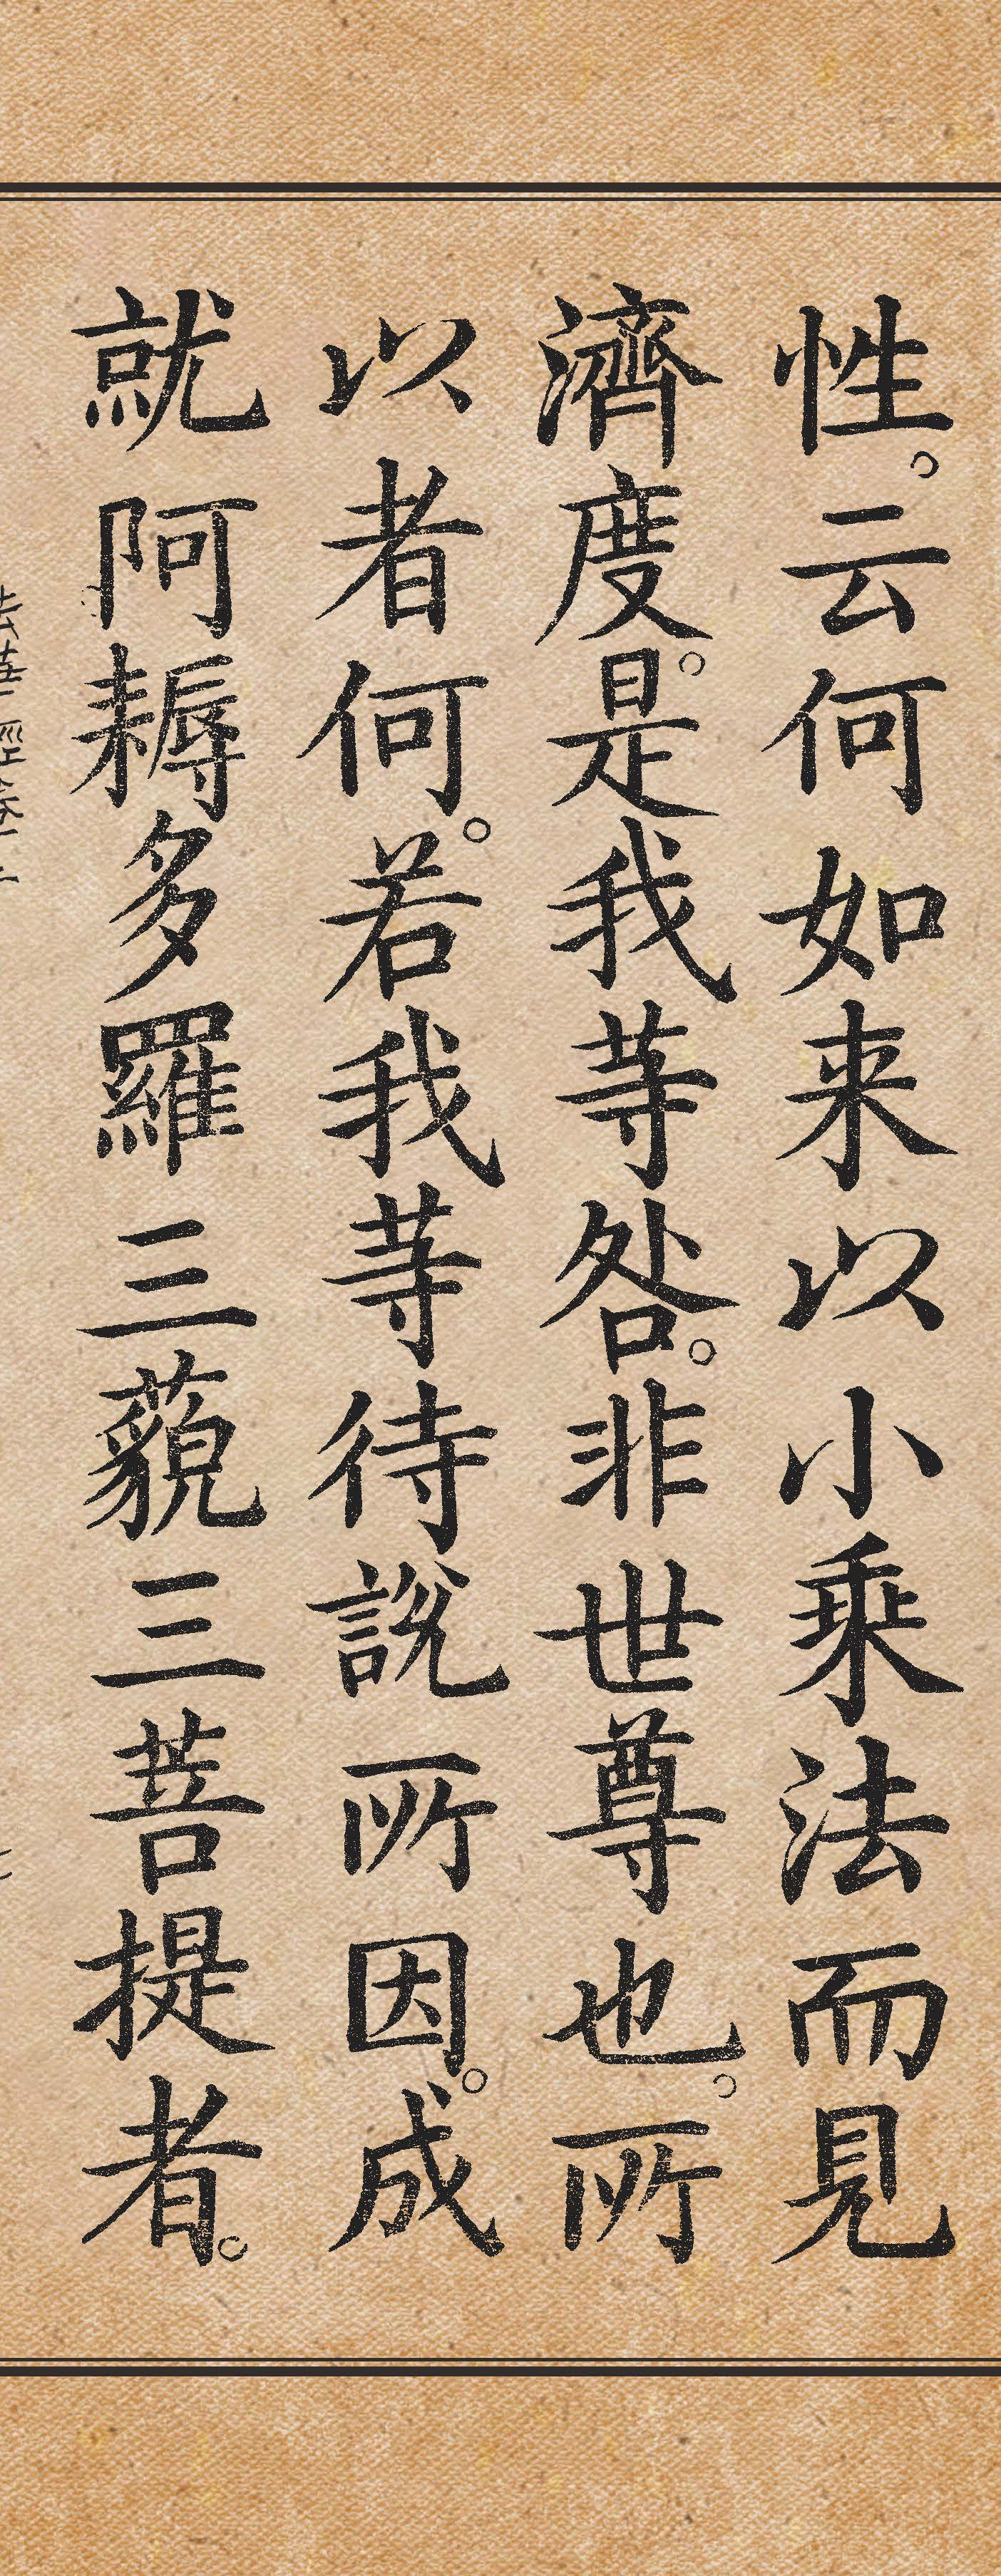 性。云何如来以小乘法而見
濟度。是我等咎。非世尊也。所
以者何。若我等待說所因。成
就阿耨多羅三藐三菩提者。